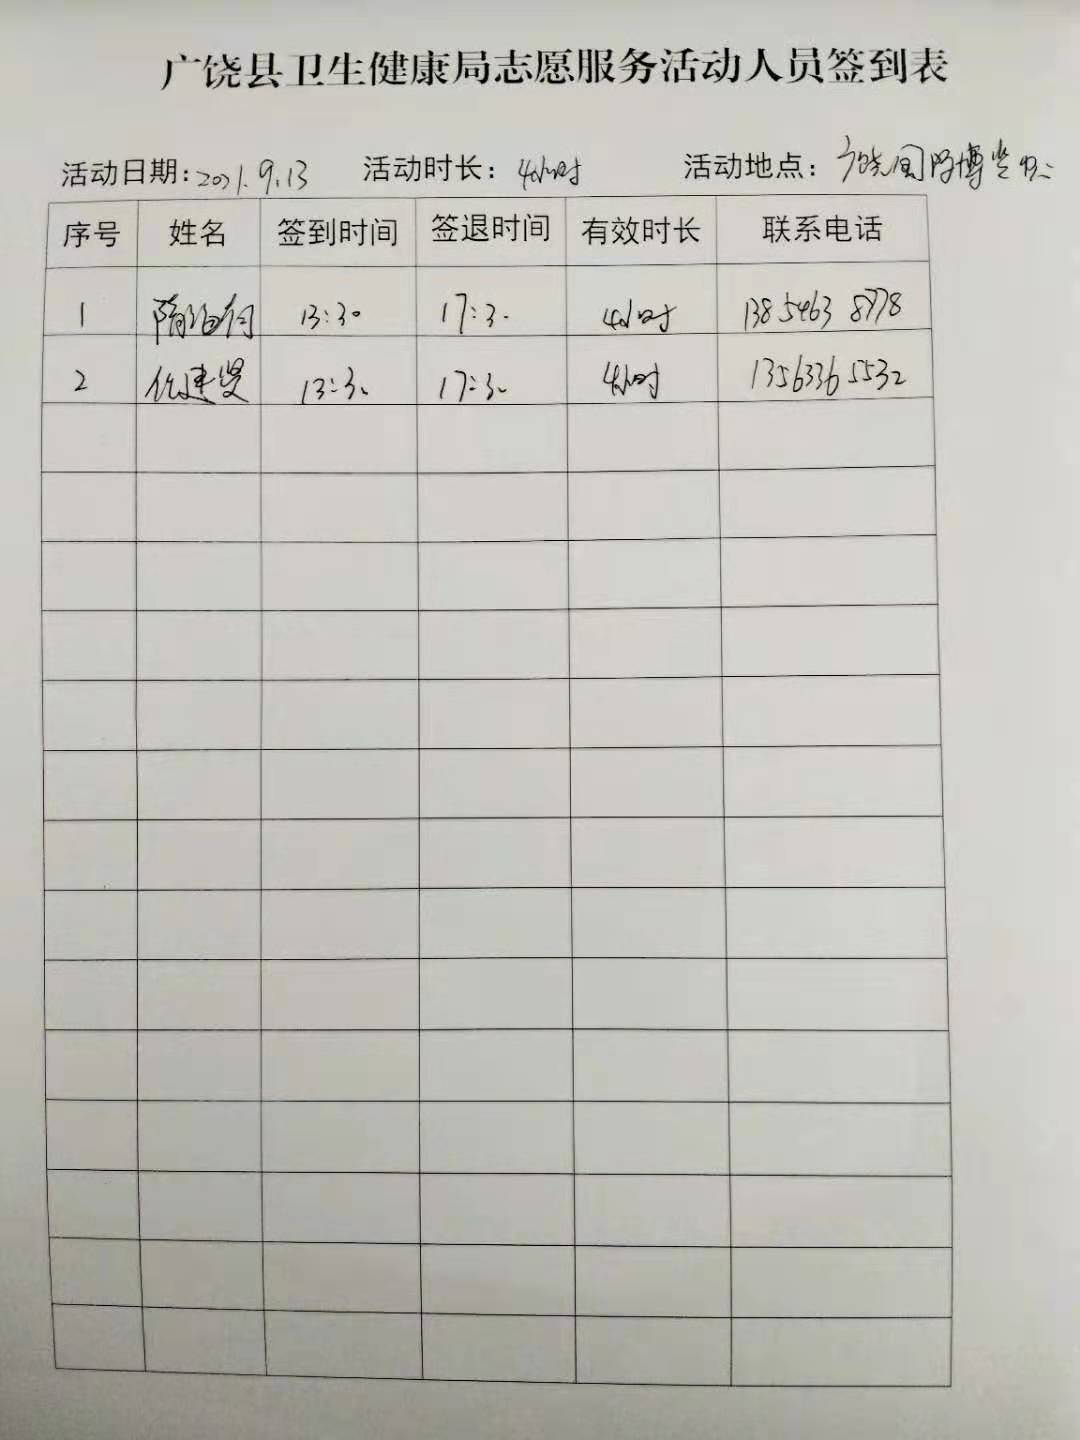 广饶县卫生健康局志愿服务活动人员签到表
活动日期：2021.9.13 活动时长：4小时 活动地点：广饶国际博览中心
序号 姓名 签到时间 签退时间 有效时长 联系电话
1 13:30 17:30 4小时 13854638778
2 任建贤 13:30 17:30 4小时 13563365532